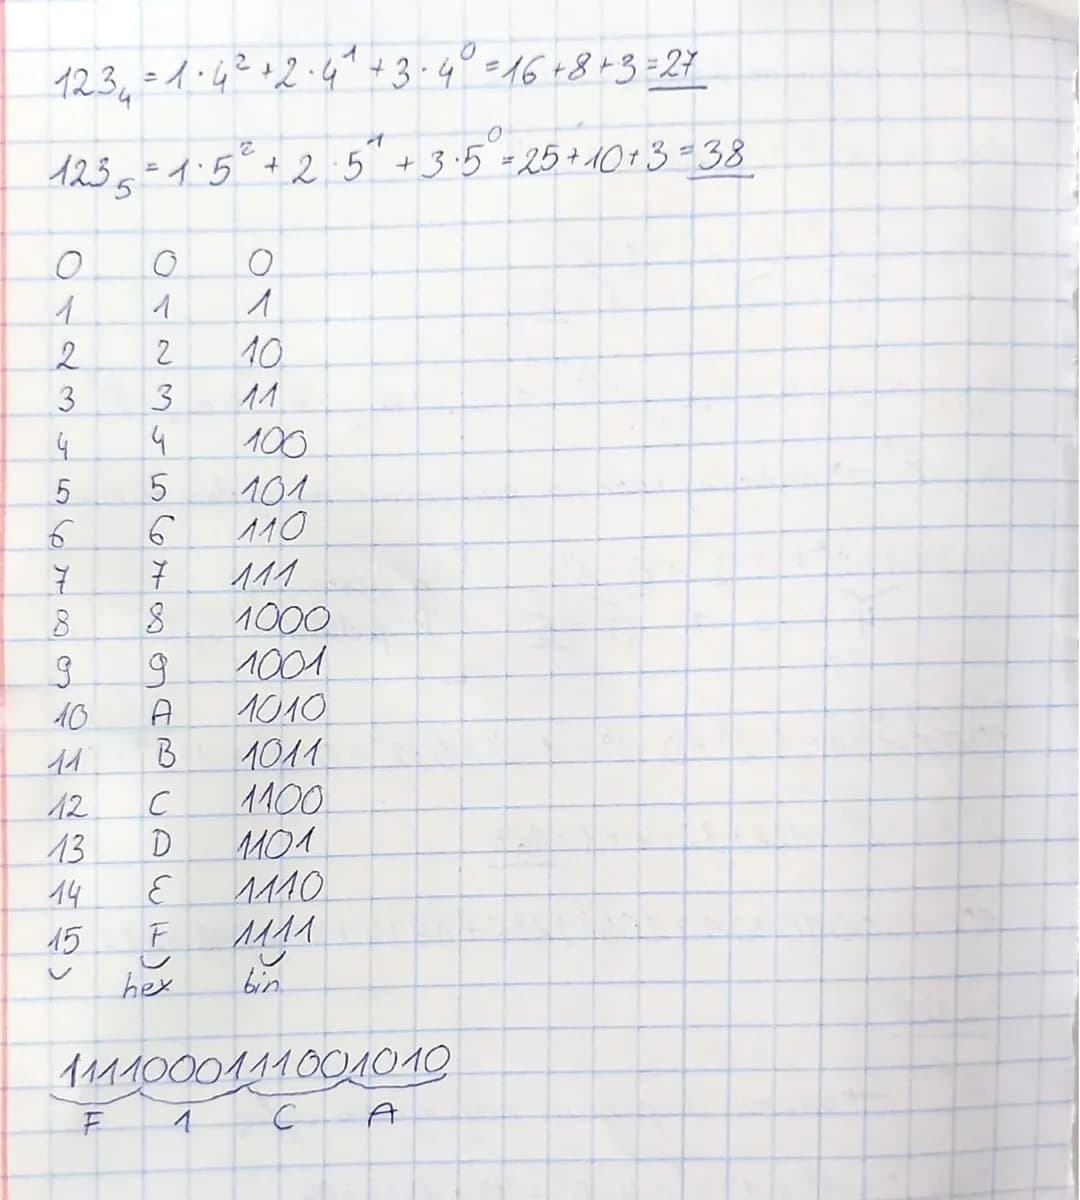 123₄ = 1·4² + 2·4¹ + 3·4⁰ = 16 + 8 + 3 = 27
123₅ = 1·5² + 2·5¹ + 3·5⁰ = 25 + 10 + 3 = 38
0 0 0
1 1 1
2 2 10
3 3 11
4 4 100
5 5 101
6 6 110
7 7 111
8 8 1000
9 9 1001
10 A 1010
11 B 1011
12 C 1100
13 D 1101
14 E 1110
15 F 1111
hex bin
1111000111001010
F 1 C A